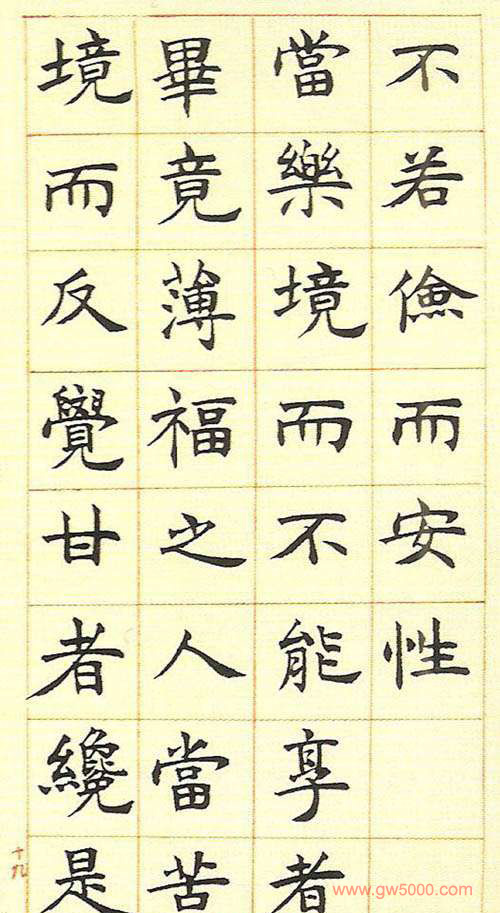 不若儉而安性
當樂境而不能享者
畢竟薄福之人當苦
境而反覺甘者纔是
十九
www.gw5000.com